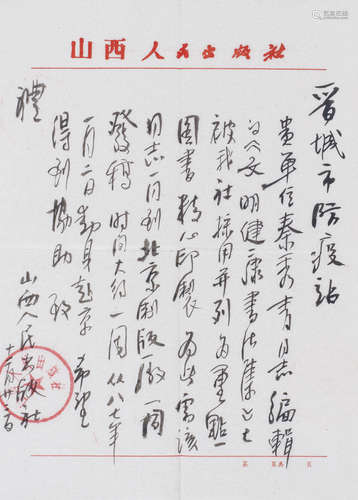 山西人民出版社
晋城市防疫站
贵单位秦秀青同志编辑
的《文明健康书法集》已
被我社採用并列为重点
图书精心印製 为此需该
同志一同到北京制版厂一同
發稿 时间大约一周 从八七年
一月二日動身赴京 希望
得到協助 致
禮
山西人民出版社